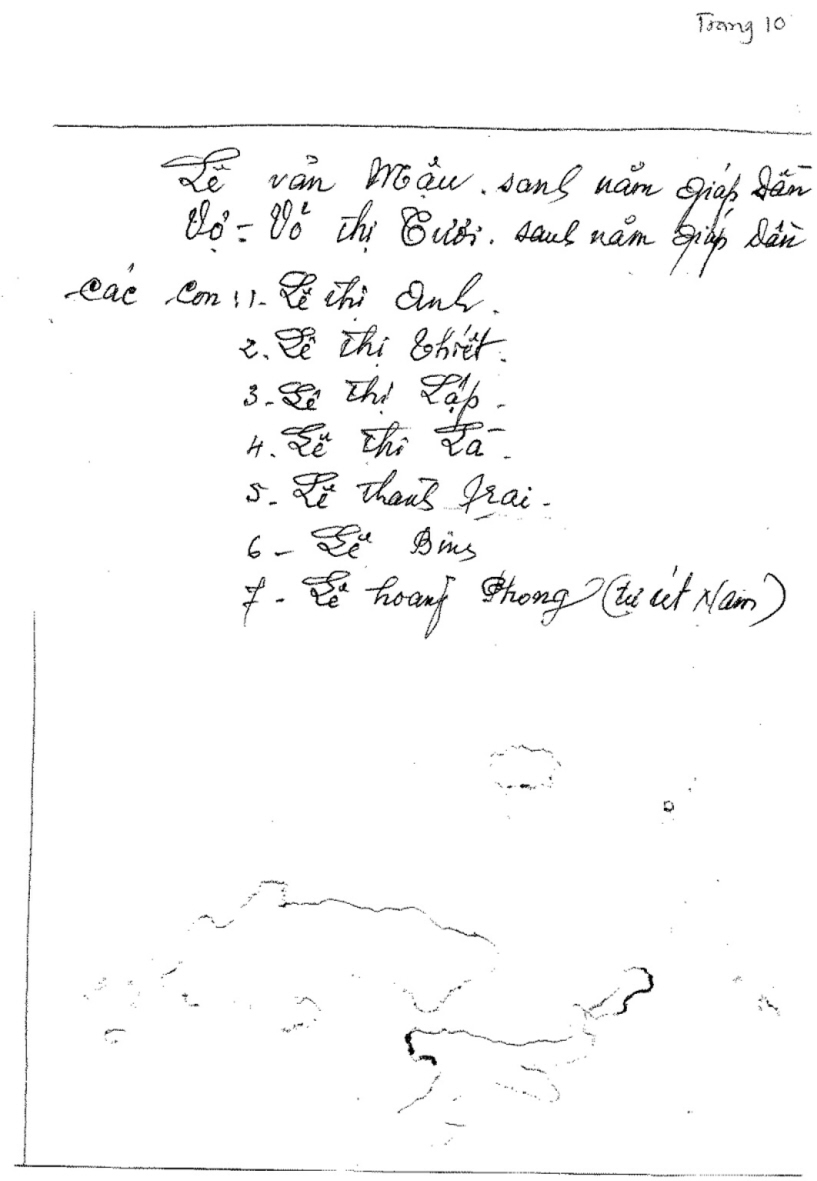 Trang 10
Lê văn Mậu. sanh năm giáp dần
Vợ = Võ thị Tưới. sanh năm giáp dần
Các con: 1- Lê thị Anh.
2. Lê thị Thiết.
3- Lê thị Lập-
4. Lê thị Là-
5- Lê thanh Trai-
6- Lê Bình
7- Lê hoang Phong (tự út Nam)